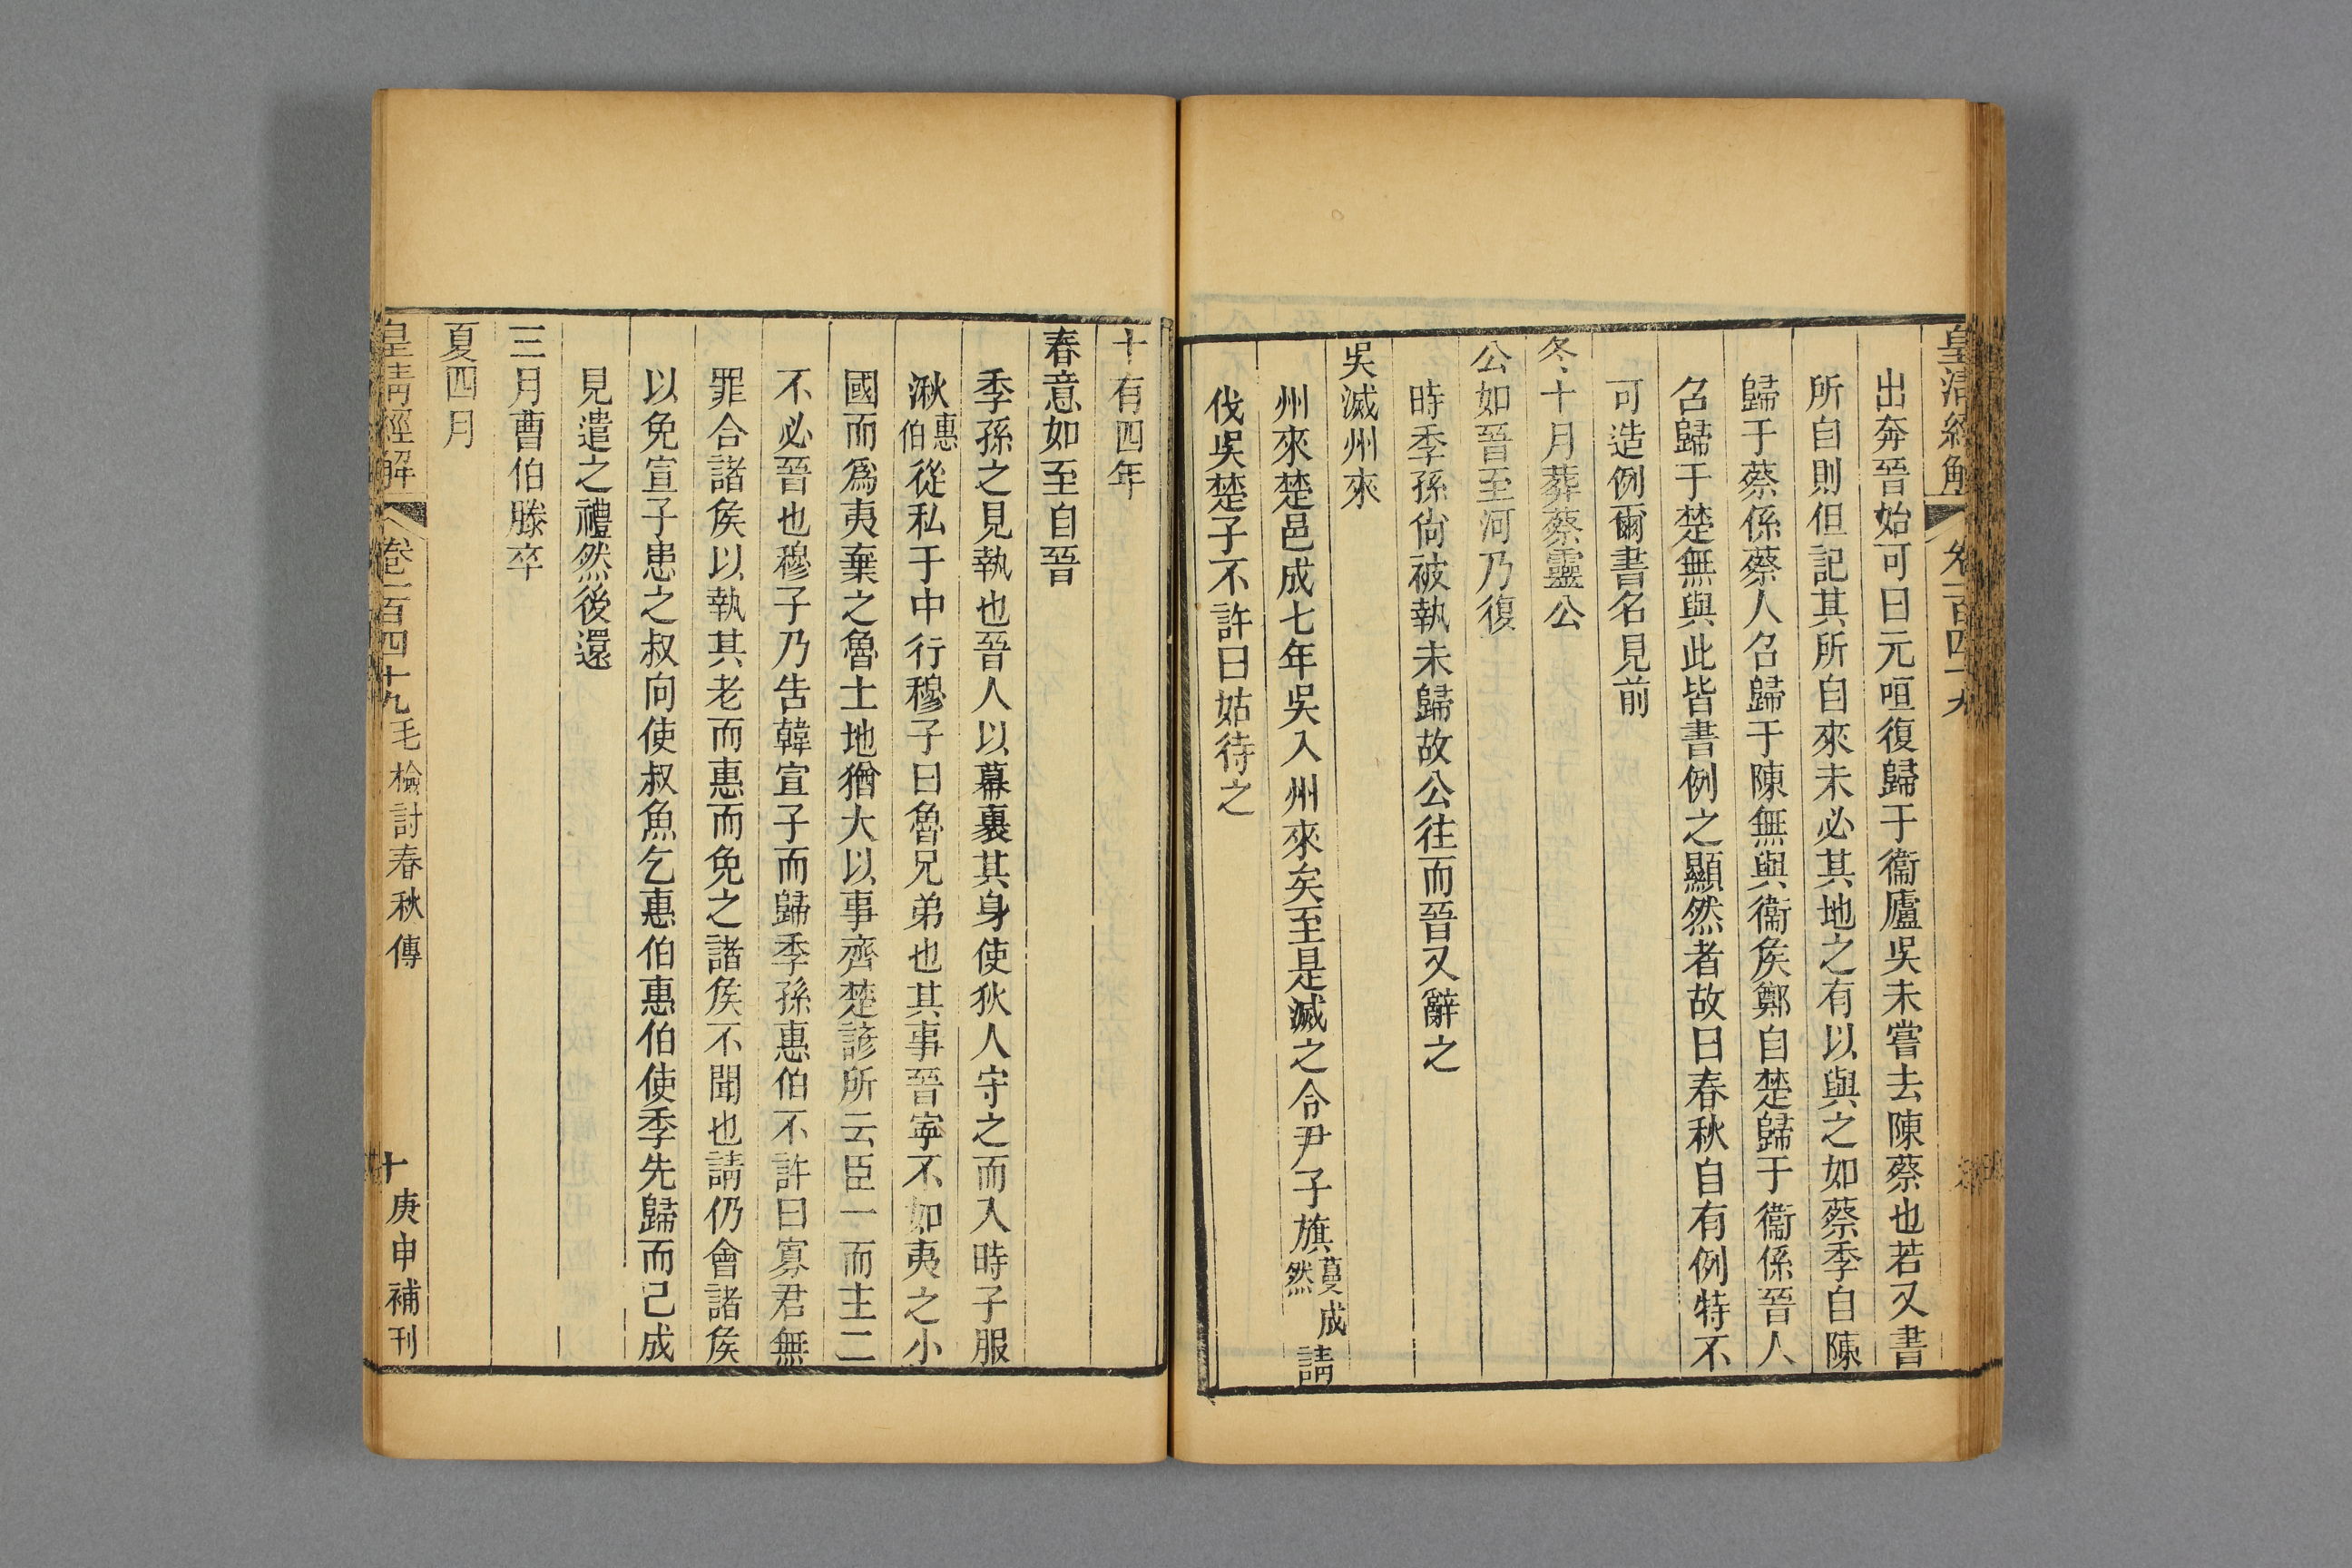 皇清經解　卷一百四十九
出奔晉始可曰元咺復歸于衞廬吳未嘗去陳蔡也若又書
所自則但記其所自來未必其地之有以與之如蔡季自陳
歸于蔡係蔡人召歸于陳無與衞矦鄭自楚歸于衞係晉人
召歸于楚無與此皆書例之顯然者故曰春秋自有例特不
可造例爾書名見前
冬十月葬蔡靈公
公如晉至河乃復
時季孫尙被執未歸故公往而晉又辭之
吳滅州來
州來楚邑成七年吳入州來矣至是滅之令尹子旗蔓成然請
伐吳楚子不許曰姑待之
十有四年
春意如至自晉
季孫之見執也晉人以幕裹其身使狄人守之而入時子服
湫惠伯從私于中行穆子曰魯兄弟也其事晉寧不如夷之小
國而爲夷棄之魯土地猶大以事齊楚諺所云臣一而主二
不必晉也穆子乃告韓宣子而歸季孫惠伯不許曰寡君無
罪合諸矦以執其老而惠而免之諸矦不聞也請仍會諸矦
以免宣子患之叔向使叔魚乞惠伯惠伯使季先歸而己成
見遣之禮然後還
三月曹伯滕卒
夏四月
皇淸經解　卷一百四十九　毛檢討春秋傳　十　庚申補刊